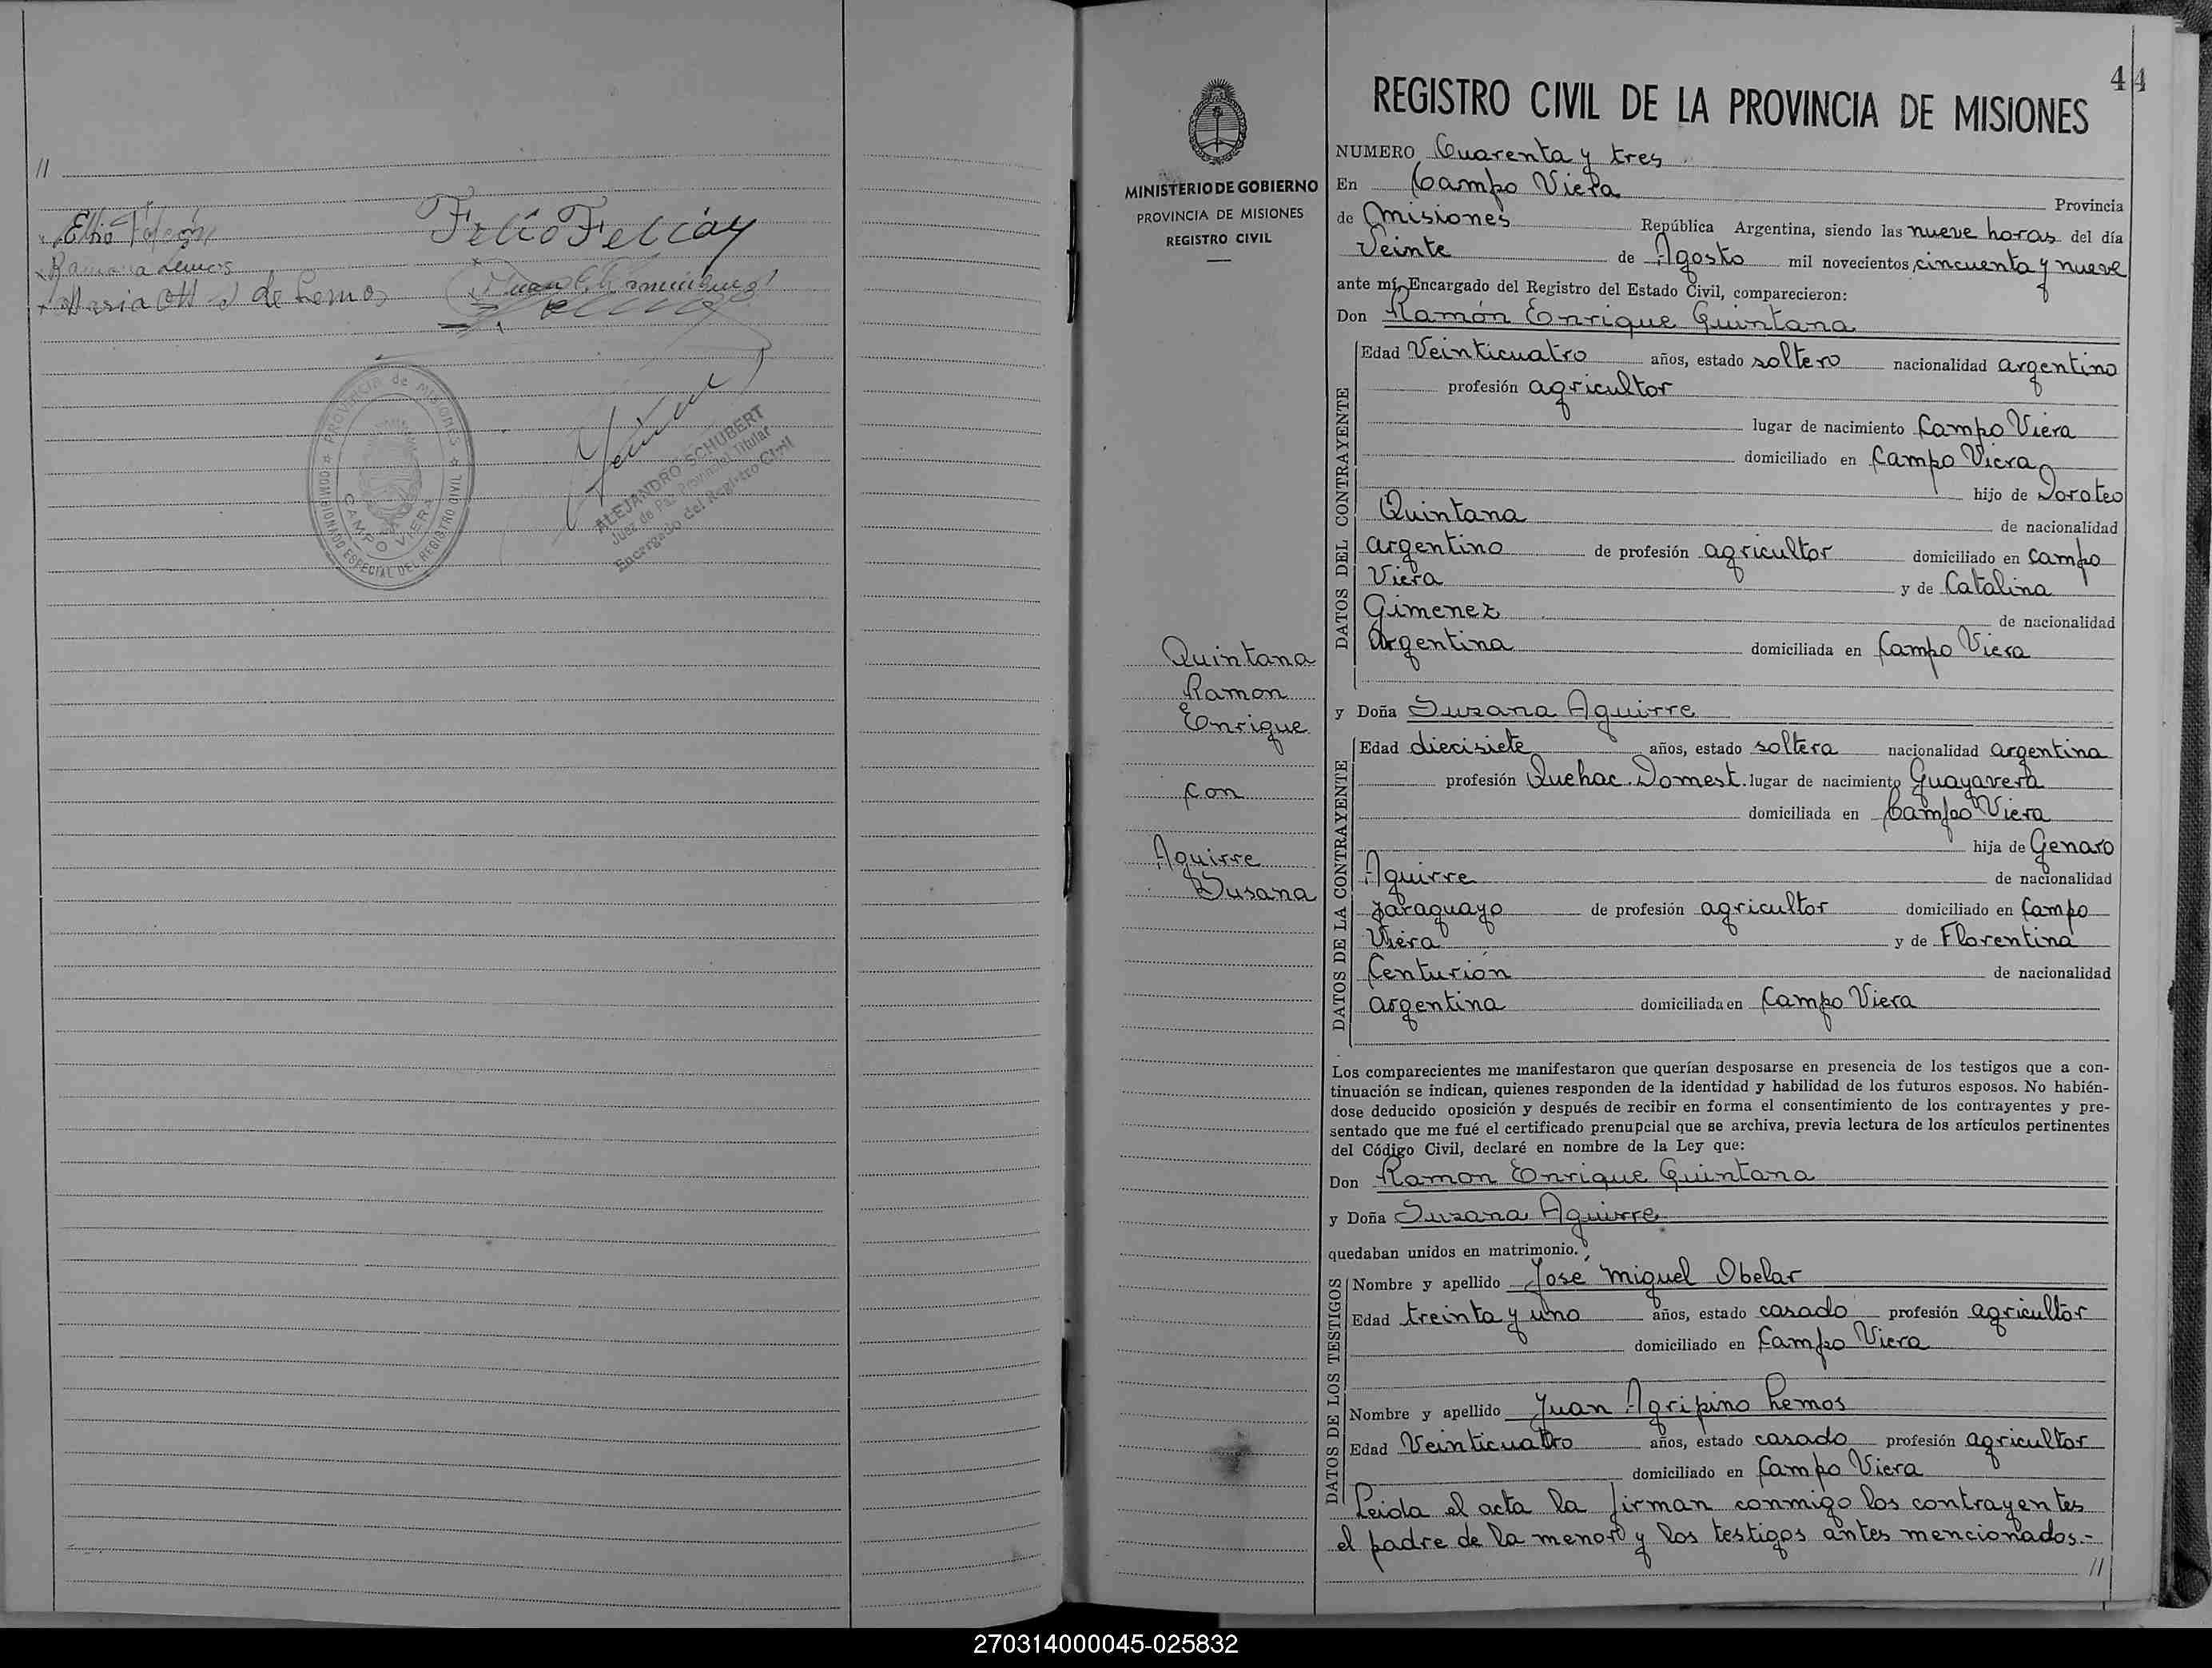 //
Elio
Felio Felciay
Ramona Lemos
Maria de Lemos
Juan C.
PROVINCIA de MISIONES
COMISIONADO ESPECIAL DEL REGISTRO CIVIL
CAMPO VIERA
ALEJANDRO SCHUBERT
Juez de Paz Provincial Titular
Encargado del Registro Civil
44
MINISTERIO DE GOBIERNO
PROVINCIA DE MISIONES
REGISTRO CIVIL
Quintana
Ramon
Enrique
con
Aguirre
Susana
REGISTRO CIVIL DE LA PROVINCIA DE MISIONES
NUMERO Cuarenta y tres
En Campo Viera Provincia
de Misiones República Argentina, siendo las nueve horas del día
Veinte de Agosto mil novecientos cincuenta y nueve
ante mí, Encargado del Registro del Estado Civil, comparecieron:
Don Ramón Enrique Quintana
DATOS DEL CONTRAYENTE
Edad Veinticuatro años, estado soltero nacionalidad argentino
profesión agricultor
lugar de nacimiento Campo Viera
domiciliado en Campo Viera
hijo de Doroteo
Quintana de nacionalidad
argentino de profesión agricultor domiciliado en Campo
Viera y de Catalina
Gimenez de nacionalidad
Argentina domiciliada en Campo Viera
y Doña Susana Aguirre
DATOS DE LA CONTRAYENTE
Edad diecisiete años, estado soltera nacionalidad argentina
profesión Quehac. Domest. lugar de nacimiento Guayavera
domiciliada en Campo Viera
hija de Genaro
Aguirre de nacionalidad
paraguayo de profesión agricultor domiciliado en Campo
Viera y de Florentina
Centurión de nacionalidad
argentina domiciliada en Campo Viera
Los comparecientes me manifestaron que querían desposarse en presencia de los testigos que a con-
tinuación se indican, quienes responden de la identidad y habilidad de los futuros esposos. No habién-
dose deducido oposición y después de recibir en forma el consentimiento de los contrayentes y pre-
sentado que me fué el certificado prenupcial que se archiva, previa lectura de los artículos pertinentes
del Código Civil, declaré en nombre de la Ley que:
Don Ramon Enrique Quintana
y Doña Susana Aguirre
quedaban unidos en matrimonio.
DATOS DE LOS TESTIGOS
Nombre y apellido José Miguel Obelar
Edad treinta y uno años, estado casado profesión agricultor
domiciliado en Campo Viera
Nombre y apellido Juan Agripino Lemos
Edad Veinticuatro años, estado casado profesión agricultor
domiciliado en Campo Viera
Leida el acta la firman conmigo los contrayentes
el padre de la menor y los testigos antes mencionados.-
//
270314000045-025832